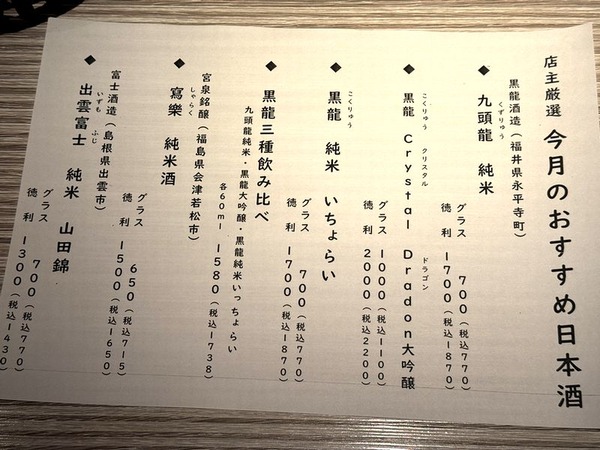 店主厳選 今月のおすすめ日本酒
黒龍酒造(福井県永平寺町)
くずりゅう
◆ 九頭龍 純米
グラス 700(税込770)
徳利 1700(税込1870)
こくりゅう クリスタル ドラゴン
◆ 黒龍 Crystal Dradon大吟醸
グラス 1000(税込1100)
徳利 2000(税込2200)
こくりゅう
◆ 黒龍 純米 いちょらい
グラス 700(税込770)
徳利 1700(税込1870)
◆ 黒龍三種飲み比べ
九頭龍純米・黒龍大吟醸・黒龍純米いっちょらい
各60ml 1580(税込1738)
宮泉銘醸(福島県会津若松市)
しゃらく
◆ 寫樂 純米酒
グラス 650(税込715)
徳利 1500(税込1650)
富士酒造(島根県出雲市)
いずも ふじ
◆ 出雲富士 純米 山田錦
グラス 700(税込770)
徳利 1300(税込1430)